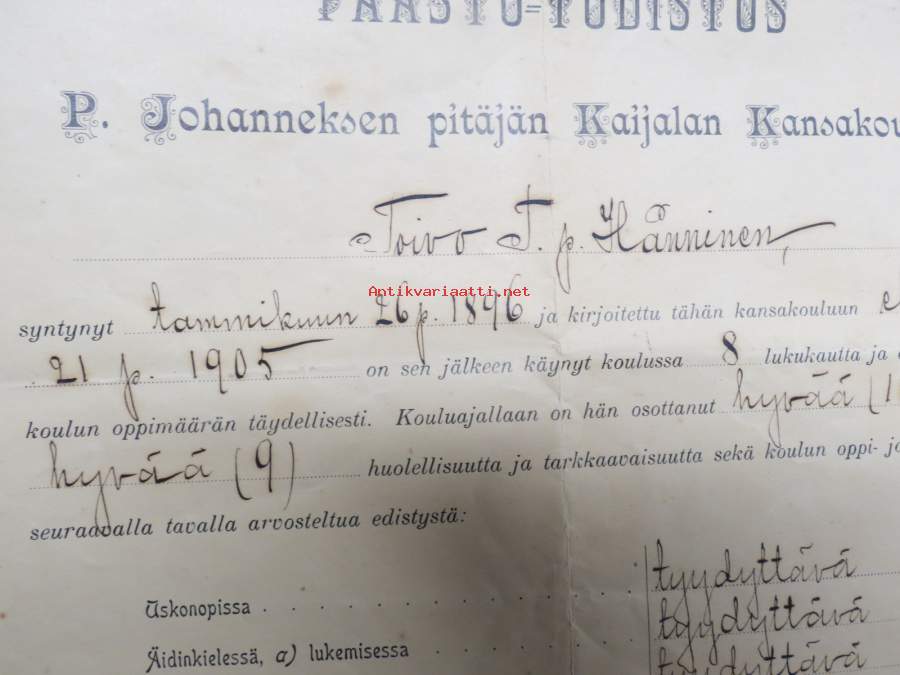 PÄÄSTÖ=TODISTUS
P. Johanneksen pitäjän Kaijalan Kansakou
Toivo T. p. Hänninen,
Antikvariaatti.net
syntynyt tammikuun 26 p. 1896 ja kirjoitettu tähän kansakouluun e
21 p. 1905 on sen jälkeen käynyt koulussa 8 lukukautta ja
koulun oppimäärän täydellisesti. Kouluajallaan on hän osottanut hyvää (1
hyvää (9) huolellisuutta ja tarkkaavaisuutta sekä koulun oppi- ja
seuraavalla tavalla arvosteltua edistystä:
tyydyttävä
Uskonopissa . . . . . . . . . tyydyttävä
Äidinkielessä, a) lukemisessa . . . . . tyydyttävä